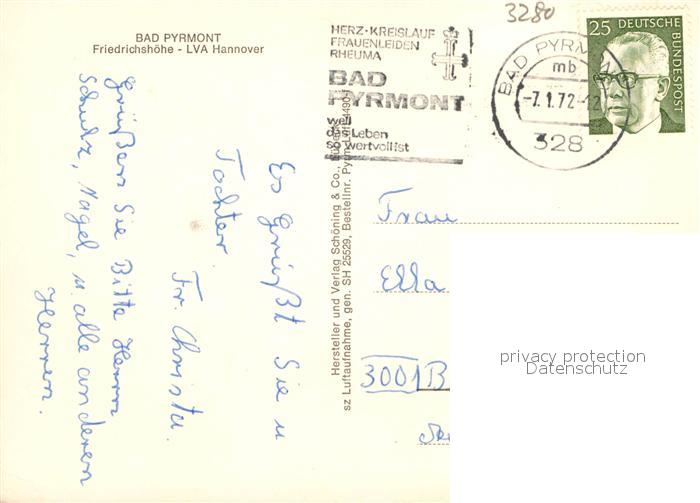 BAD PYRMONT
Friedrichshöhe - LVA Hannover
Es grüßt Sie u
Tochter.
Fr. Christa.
Grüßen Sie Bitte Herrn
Schulz, Nagel, u. alle anderen
Herren.
Hersteller und Verlag Schöning & Co.,
sz Luftaufnahme, gen. SH 25529, Bestellnr. Pyrm.
3280
HERZ-KREISLAUF
FRAUENLEIDEN
RHEUMA
BAD
PYRMONT
weil
das Leben
so wertvoll ist
BAD PYRMONT
mb
-7.1.72-12
328
25 DEUTSCHE BUNDESPOST
Frau
Ella
3001 B
privacy protection
Datenschutz